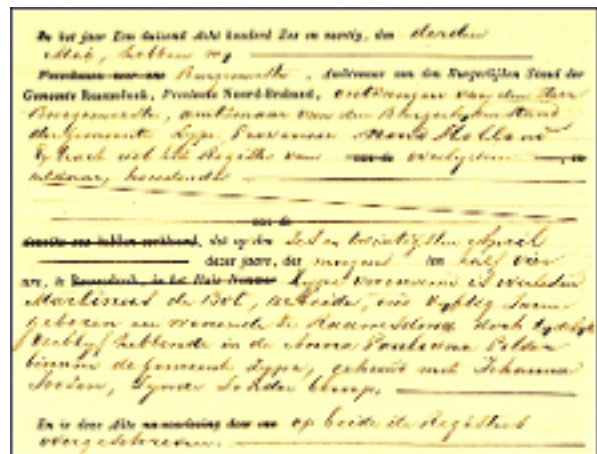 In het jaar Een duizend Acht honderd Zes en veertig, den derden
Mei, hebben wij
Burgemeester, Ambtenaar van den Burgerlijken Stand der
Gemeente Raamsdonk, Provincie Noord-Braband, ontvangen van den Heer
Burgemeester, ambtenaar van den Burgerlyken Stand
der Gemeente Zype Provincie Noord Holland
Extract uit het Register van overlyden
aldaar, houdende
dat op den Zes en twintigsten April
dezer jaars, des morgens ten half vier
ure, in Zype voornoemd is overleden
Martinus de Bot, arbeider, oud vyftig Jaren
geboren en wonende te Raamsdonk doch tydelyk
verblyf hebbende in de Anna Paulowna Polder
binnen de Gemeente Zype, gehuwd met Johanna
zynde zonder
En is deze Akte op beide de Registers
overgeschreven.